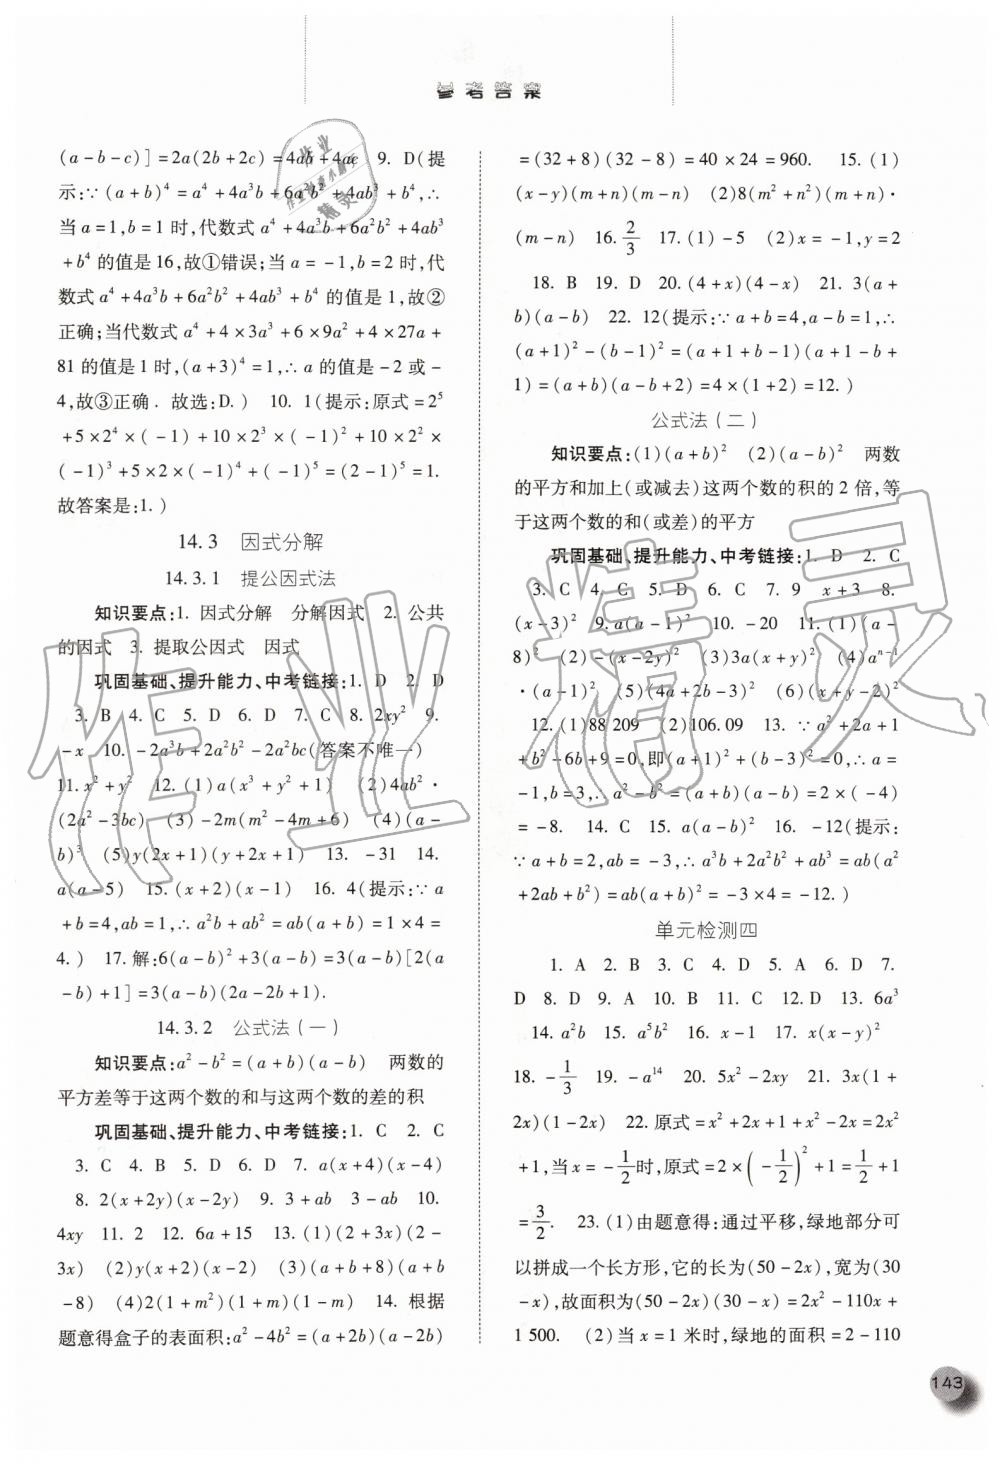 参考答案
(a-b-c)]=2a(2b+2c)=4ab+4ac 9. D(提
示:∵(a+b)⁴=a⁴+4a³b+6a²b²+4ab³+b⁴,∴
当a=1,b=1时,代数式a⁴+4a³b+6a²b²+4ab³
+b⁴的值是16,故①错误;当a=-1,b=2时,代
数式a⁴+4a³b+6a²b²+4ab³+b⁴的值是1,故②
正确;当代数式a⁴+4×3a³+6×9a²+4×27a+
81的值是1时,(a+3)⁴=1,∴a的值是-2或-
4,故③正确. 故选:D.) 10. 1(提示:原式=2⁵
+5×2⁴×(-1)+10×2³×(-1)²+10×2²×
(-1)³+5×2×(-1)⁴+(-1)⁵=(2-1)⁵=1.
故答案是:1.)
14.3 因式分解
14.3.1 提公因式法
知识要点:1. 因式分解 分解因式 2. 公共
的因式 3. 提取公因式 因式
巩固基础、提升能力、中考链接:1. D 2. D
3. B 4. C 5. D 6. D 7. C 8. 2xy² 9.
-x 10. -2a³b+2a²b²-2a²bc(答案不唯一)
11. x²+y² 12. (1)a(x²+y²+1) (2)4ab²·
(2a²-3bc) (3)-2m(m²-4m+6) (4)(a-
b)³ (5)y(2x+1)(y+2x+1) 13. -31 14.
a(a-5) 15. (x+2)(x-1) 16. 4(提示:∵a
+b=4,ab=1,∴a²b+ab²=ab(a+b)=1×4=
4.) 17. 解:6(a-b)²+3(a-b)=3(a-b)[2(a
-b)+1]=3(a-b)(2a-2b+1).
14.3.2 公式法(一)
知识要点:a²-b²=(a+b)(a-b) 两数的
平方差等于这两个数的和与这两个数的差的积
巩固基础、提升能力、中考链接:1. C 2. C
3. C 4. B 5. D 6. D 7. a(x+4)(x-4)
8. 2(x+2y)(x-2y) 9. 3+ab 3-ab 10.
4xy 11. 2 12. 6a+15 13. (1)(2+3x)(2-
3x) (2)y(x+2)(x-2) (3)(a+b+8)(a+b
-8) (4)2(1+m²)(1+m)(1-m) 14. 根据
题意得盒子的表面积:a²-4b²=(a+2b)(a-2b)
=(32+8)(32-8)=40×24=960. 15. (1)
(x-y)(m+n)(m-n) (2)8(m²+n²)(m+n)·
(m-n) 16. 2/3 17. (1)-5 (2)x=-1,y=2
18. B 19. D 20. (4+x)(4-x) 21. 3(a+
b)(a-b) 22. 12(提示:∵a+b=4,a-b=1,∴
(a+1)²-(b-1)²=(a+1+b-1)(a+1-b+
1)=(a+b)(a-b+2)=4×(1+2)=12.)
公式法(二)
知识要点:(1)(a+b)² (2)(a-b)² 两数
的平方和加上(或减去)这两个数的积的2倍,等
于这两个数的和(或差)的平方
巩固基础、提升能力、中考链接:1. D 2. C
3. C 4. C 5. C 6. D 7. 9 x+3 8.
(x-3)² 9. a(a-1)² 10. -20 11. (1)(a-
8)² (2)-(x-2y)² (3)3a(x+y)² (4)aⁿ⁻¹
·(a-1)² (5)(4a+2b-3)² (6)(x+y-2)²
12. (1)88 209 (2)106.09 13. ∵a²+2a+1
+b²-6b+9=0,即(a+1)²+(b-3)²=0,∴a=
-1,b=3,∴a²-b²=(a+b)(a-b)=2×(-4)
=-8. 14. C 15. a(a-b)² 16. -12(提示:
∵a+b=2,ab=-3,∴a³b+2a²b²+ab³=ab(a²
+2ab+b²)=ab(a+b)²=-3×4=-12.)
单元检测四
1. A 2. B 3. C 4. C 5. A 6. D 7.
D 8. D 9. A 10. B 11. C 12. D 13. 6a³
14. a²b 15. a⁵b² 16. x-1 17. x(x-y)²
18. -1/3 19. -a¹⁴ 20. 5x²-2xy 21. 3x(1+
2x)(1-2x) 22. 原式=x²+2x+1+x²-2x=2x²
+1,当x=-1/2时,原式=2×(-1/2)²+1=1/2+1
=3/2. 23. (1)由题意得:通过平移,绿地部分可
以拼成一个长方形,它的长为(50-2x),宽为(30
-x),故面积为(50-2x)(30-x)=2x²-110x+
1 500. (2)当x=1米时,绿地的面积=2-110
143
作业精灵